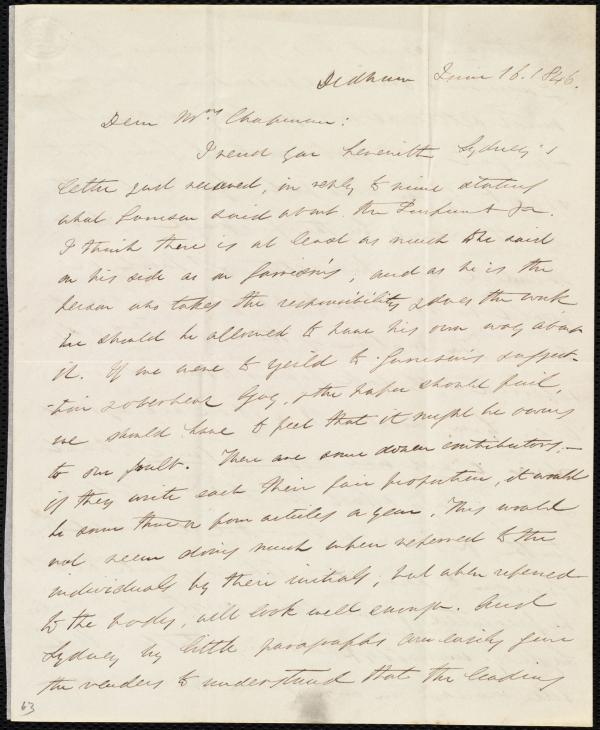 Dedham June 16. 1846.
Dear Mrs Chapman:
I send you herewith Sydney's
letter just received, in reply to mine stating
what Garrison said about the &c.
I think there is at least as much to be said
on his side as on Garrison's, and as he is the
person who takes the responsibility & does the work
he should be allowed to have his own way about
it. If we were to yeild to Garrison's suggest-
-ion & overbear Gay, & the paper should fail,
we should have to feel that it might be owing
to our fault. There are some dozen contributors,—
if they write each their fair proportion, it would
be some three or four articles a year. This would
not seem doing much when referred to the
individuals by their initials, but when referred
to the body, will look well enough. And
Sydney by little paragraphs can easily give
the readers to understand that the leading
63